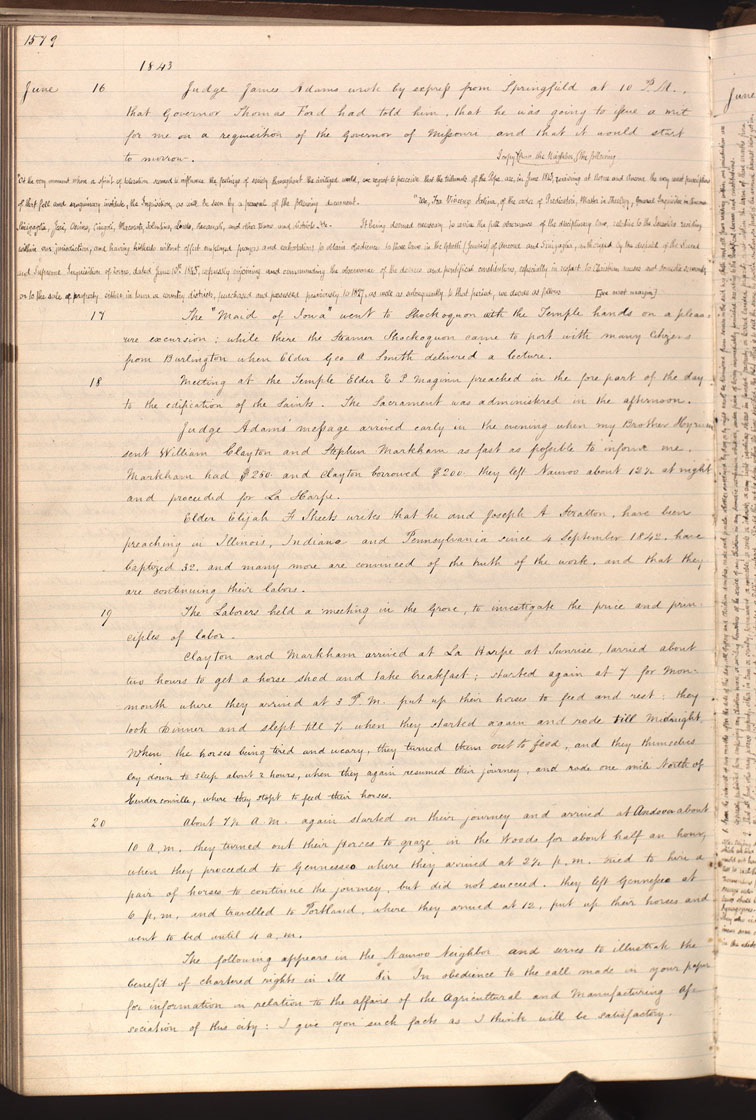 1579
1843
June 16 Judge James Adams wrote by express from Springfield at 10 P.M.,
that Governor Thomas Ford had told him, that he was going to issue a writ
for me on a requisition of the Governor of Missouri and that it would start
to morrow.
Copy from the Neighbor of the following
"At the very moment when a spirit of toleration seemed to influence the feelings of society throughout the civilized world, we regret to perceive that the tribunals of the Pope are, in June 1843, reviving at Rome and Ancona the very worst proscriptions
of that fell and sanguinary institute, the Inquisition, as will be seen by a perusal of the following document. "We, Fra Vincenzo Salina, of the order of Predicatori, Master in Theology, General Inquisitor in Ancona
Sinigaglia, Jesi, Osimo, Cingoli, Macerata, Tolentino, Loreto, Recanati, and other towns and districts &c. It being deemed necessary to revive the full observance of the disciplinary laws relative to the Israelites residing
within our jurisdiction, and having hitherto without effect employed prayers and exhortations to obtain obedience to those laws in the Ghetti (Jewries) of Ancona and Sinigaglia, authorized by the despatch of the Sacred
and Supreme Inquisition of Rome, dated June 10th 1843, expressly enjoining and commanding the observance of the decrees and pontifical constitutions, especially in respect to Christian nurses and domestic servants,
or to the sale of property either in town or country districts, purchased and possessed previously to 1827, as well as subsequently to that period, we decree as follows [See next margin]
17 The "Maid of Iowa" went to Shockoquon with the Temple hands on a pleas-
ure excursion; while there the Steamer Shockoquon came to port with many Citizens
from Burlington when Elder Geo A Smith delivered a lecture.
18 Meeting at the Temple Elder E P Maginn preached in the fore part of the day
to the edification of the Saints. The Sacrament was administered in the afternoon.
Judge Adams' message arrived early in the evening when my Brother Hyrum
sent William Clayton and Stephen Markham as fast as possible to inform me.
Markham had $250 and Clayton borrowed $200 they left Nauvoo about 12½ at night
and proceeded for La Harpe.
Elder Elijah F Sheets writes that he and Joseph A Stratton, have been
preaching in Illinois, Indiana and Pennsylvania since 4 September 1842. have
baptized 32, and many more are convinced of the truth of the work, and that they
are continuing their labors.
19 The Laborers held a meeting in the Grove, to investigate the price and prin-
ciples of labor.
Clayton and Markham arrived at La Harpe at Sunrise, tarried about
two hours to get a horse shod and take breakfast; started again at 7 for Mon-
mouth where they arrived at 3 P.M. put up their horses to feed and rest; they
took Dinner and slept till 7, when they started again and rode till midnight,
When the horses being tired and weary, they turned them out to feed, and they themselves
lay down to sleep about 2 hours, when they again resumed their journey, and rode one mile North of
Hendersonville, where they stopt to feed their horses.
20 About 7½ A.M. again started on their journey and arrived at Andover about
10 A.M. they turned out their horses to graze in the Woods for about half an hour,
when they proceeded to Genneseo where they arrived at 2½ p.m. tried to hire a
pair of horses to continue the journey, but did not succeed. they left Genneseo at
6 p.m. and travelled to Portland, where they arrived at 12, put up their horses and
went to bed until 4 a.m.
The following appears in the Nauvoo Neighbor and serves to illustrate the
benefit of chartered rights in Ill "Sir In obedience to the call made in your paper
for information in relation to the affairs of the Agricultural and Manufacturing As-
sociation of this city: I give you such facts as I think will be satisfactory.
June